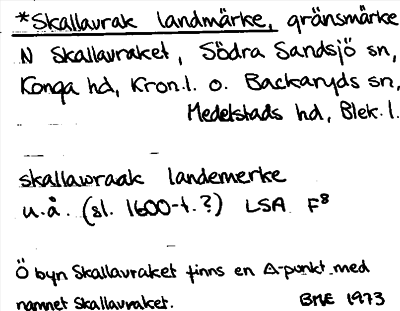 *Skallavrak landmärke, gränsmärke
N Skallavraket, Södra Sandsjö sn,
Konga hd, Kron.l. o. Backaryds sn,
Medelstads hd, Blek.l.
skallawraak landemerke
u.å. (sl. 1600-t.?) LSA F⁸
Ö byn Skallavraket finns en Δ-punkt med
namnet Skallavraket. BME 1973